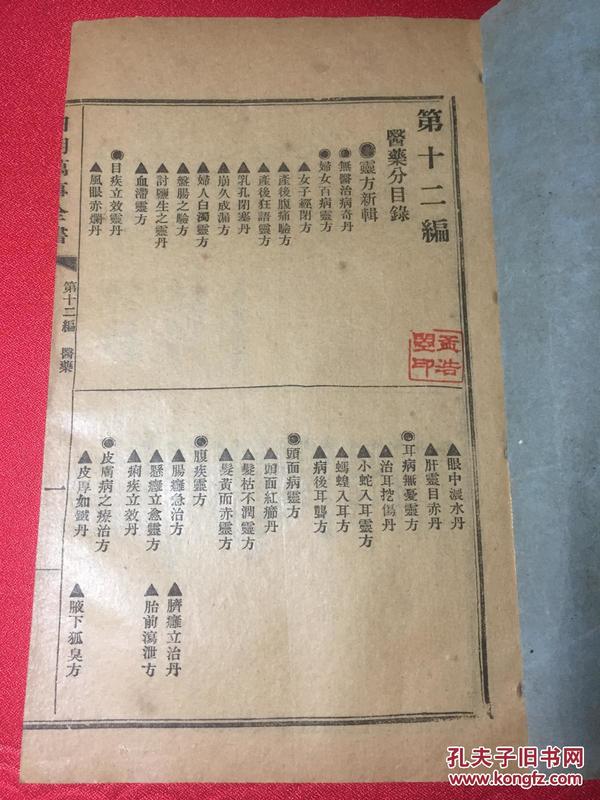 第十二編
醫藥分目錄
靈方新輯
無醫治病奇丹
婦女百病靈方
女子經閉方
產後腹痛驗方
產後狂語靈方
乳孔閉塞丹
崩久成漏方
婦人白濁靈方
盤腸之驗方
討鹽生之靈丹
血滯靈方
目疾立效靈丹
風眼赤爛丹
眼中淚水丹
肝靈目赤丹
耳病無憂靈方
治耳挖傷丹
小蛇入耳靈方
螞蝗入耳方
病後耳聾方
頭面病靈方
頭面紅癤丹
髮枯不潤靈方
髮黃而赤靈方
腹疾靈方
腸癰急治方
臍癰立治丹
懸癰立愈靈方
胎前瀉泄方
痢疾立效丹
皮膚病之療治方
皮厚如鐵丹
腋下狐臭方
萬事全書
第十二編
醫藥
一
孟浩
印
孔夫子旧书网
www.kongfz.com